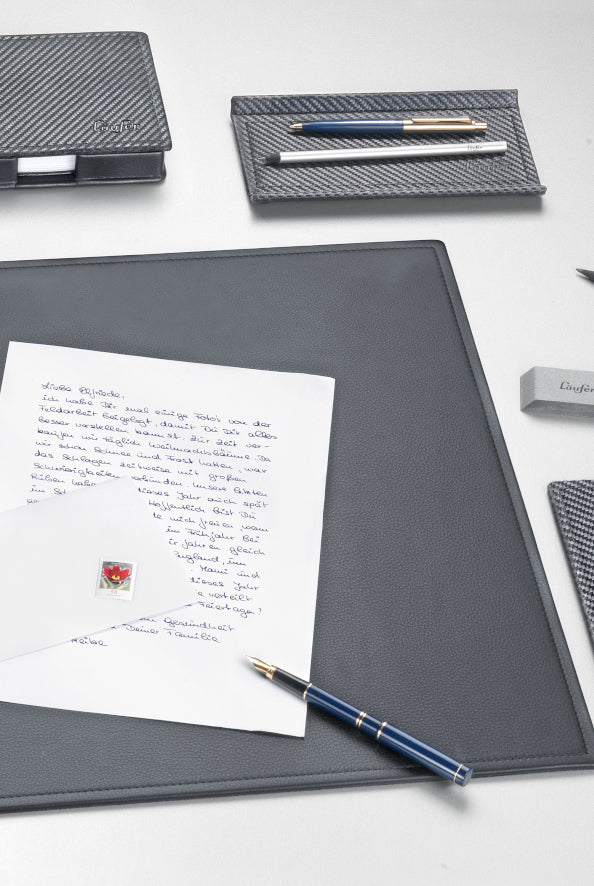 Läufer
Läufer
Läufer
Liebe Elfriede,
ich habe Dir mal einige Foto's von der
Feldarbeit beigelegt, damit Du Dir alles
besser vorstellen kannst. Zur Zeit ver-
kaufen wir täglich Weihnachtsbäume. Da
wir schon Schnee und Frost hatten, war
das Schlagen zeitweise mit großen
Schwierigkeiten verbunden. Unsere letzten
Rüben habe
im dieses Jahr auch spät
Hoffentlich bist Du
mich freuen, wenn
im Frühjahr bei
Jahren gleich
England, im
Mami und
dieses Jahr
verteilt
Feiertage?
Gesundheit
Deiner Familie